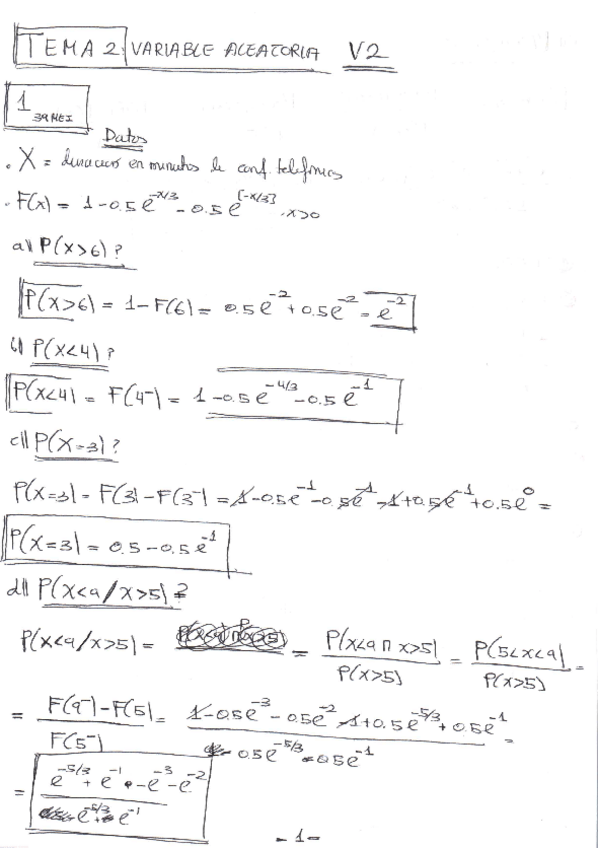 TEMA 2 VARIABLE ALEATORIA V2
1
Datos
. X = duracion en minutos de conf. telefónica
. F(x) = 1-0.5e^{-x/3} - 0.5e^{[-x/3]} . x>0
a\\ P(x>6)?
P(x>6) = 1-F(6) = 0.5e^{-2} + 0.5e^{-2} = e^{-2}
b\\ P(x<4)?
P(x<4) = F(4^-) = 1-0.5e^{-4/3} - 0.5e^{-1}
c\\ P(x=3)?
P(x=3) = F(3) - F(3^-) = 1-0.5e^{-1} - 0.5e^{-1} - 1+0.5e^{-1} + 0.5e^{0} =
P(x=3) = 0.5-0.5e^{-1}
d\\ P(x<9/x>5)?
P(x<9/x>5) = = P(x<9∩x>5)/P(x>5) = P(5<x<9)/P(x>5) =
= F(9^-)-F(5)/F(5^-) = 1-0.5e^{-3} - 0.5e^{-2} - 1+0.5e^{-5/3} + 0.5e^{-1}/0.5e^{-5/3} 0.5e^{-1} =
= e^{-5/3} + e^{-1} - e^{-3} - e^{-2}/e^{-5/3} + e^{-1}
- 1 -